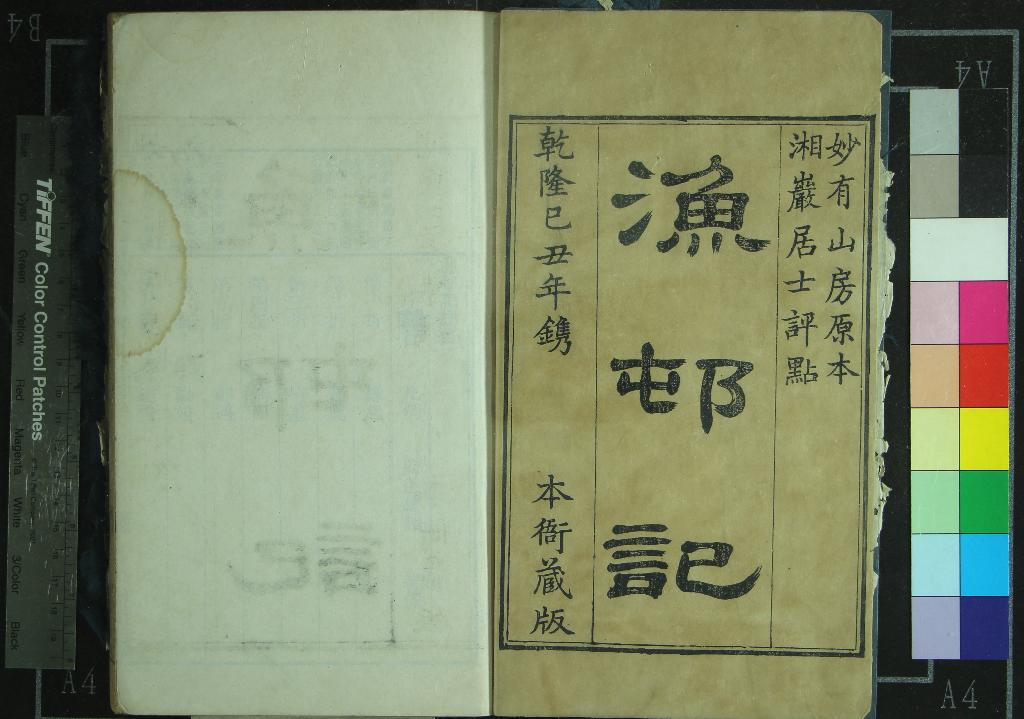 妙有山房原本
湘巖居士評點
漁邨記
乾隆己丑年鐫
本衙蔵版
TIFFEN Color Control Patches
Blue
Cyan
Green
Yellow
Red
Magenta
White
3/Color
Black
B4
A4
A4
A4